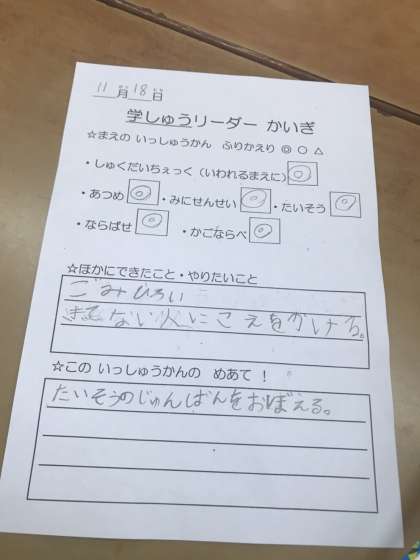 11月18日
学しゅうリーダー かいぎ
☆まえの いっしゅうかん ふりかえり ◎ ○ △
・しゅくだいちぇっく（いわれるまえに） ◎
・あつめ ◎ ・みにせんせい ◎ ・たいそう ◎
・ならばせ ◎ ・かごならべ ◎
☆ほかにできたこと・やりたいこと
ごみひろい
きてない人にこえをかける。
☆この いっしゅうかんの めあて！
たいそうのじゅんばんをおぼえる。